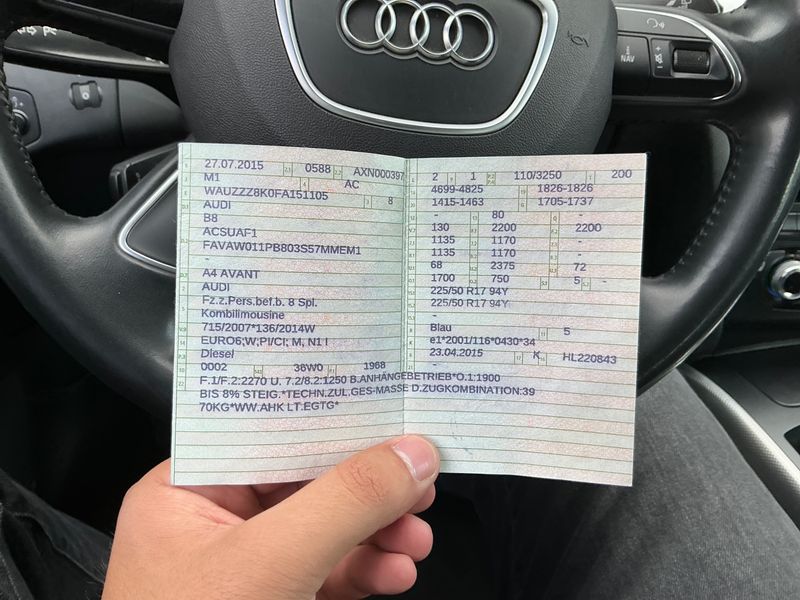 NAV
27.07.2015 0588 AXN000397
M1 AC
WAUZZZ8K0FA151105 8
AUDI
B8
ACSUAF1
FAVAW011PB803S57MMEM1
-
A4 AVANT
AUDI
Fz.z.Pers.bef.b. 8 Spl.
Kombilimousine
715/2007*136/2014W
EURO6;W;PI/CI; M, N1 I
Diesel
0002 36W0 1968
2 1 110/3250 200
4699-4825 1826-1826
1415-1463 1705-1737
- 80 -
130 2200 2200
1135 1170 -
1135 1170 -
68 2375 72
1700 750 5 -
225/50 R17 94Y
225/50 R17 94Y
-
Blau 5
e1*2001/116*0430*34
23.04.2015 K HL220843
-
F.1/F.2:2270 U. 7.2/8.2:1250 B.ANHÄNGEBETRIEB*O.1:1900
BIS 8% STEIG.*TECHN.ZUL.GES-MASSE D.ZUGKOMBINATION:39
70KG*WW.AHK LT.EGTG*